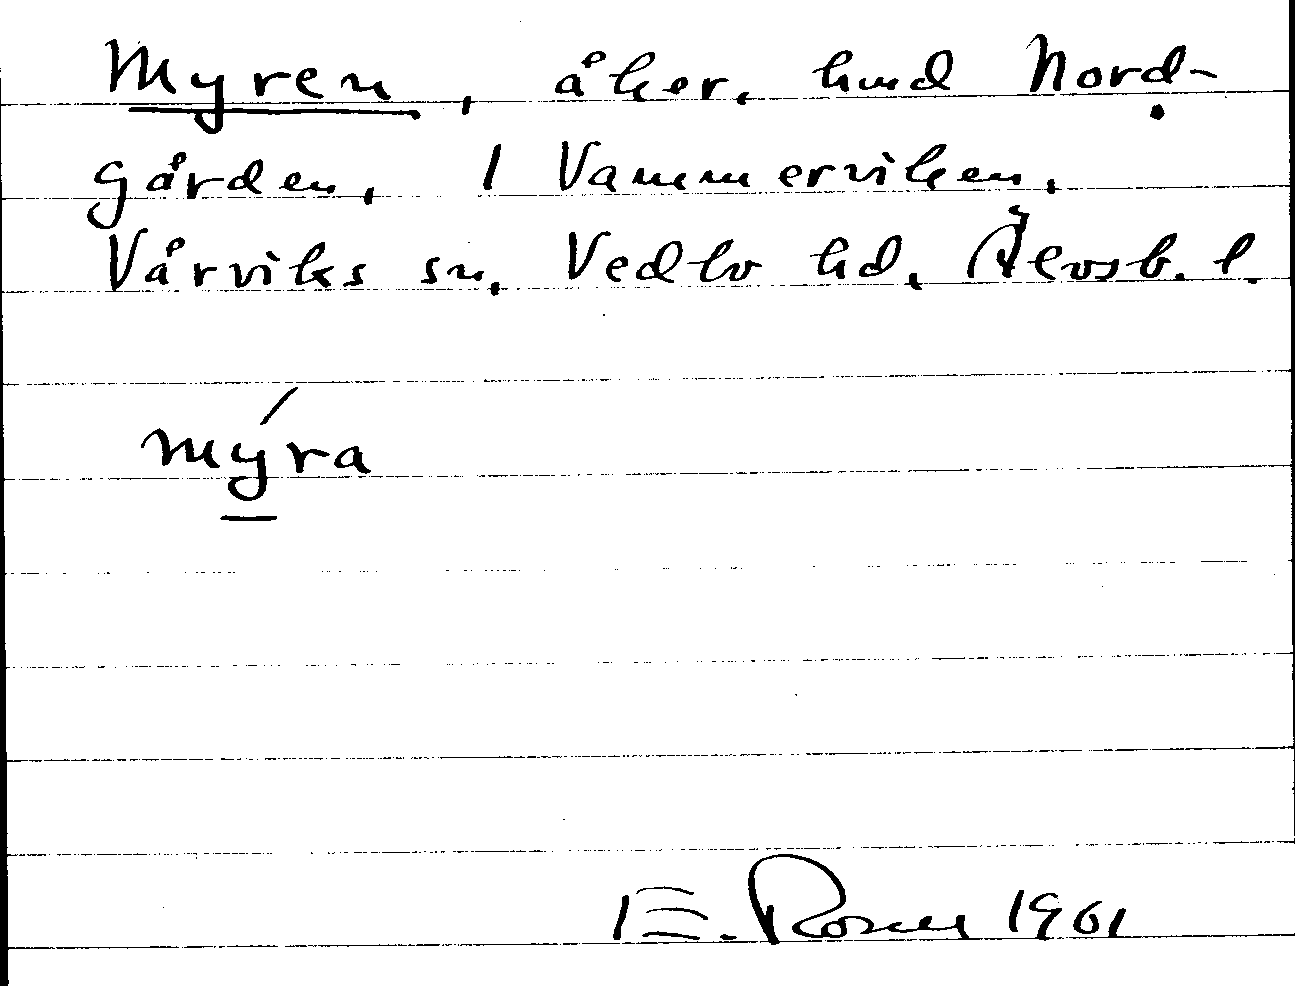 Myren, åker, hmd Nord-
gården, 1 Vammerviken,
Vårviks sn, Vedbo hd, Älvsb. l.
mýra
E. Rosell 1961